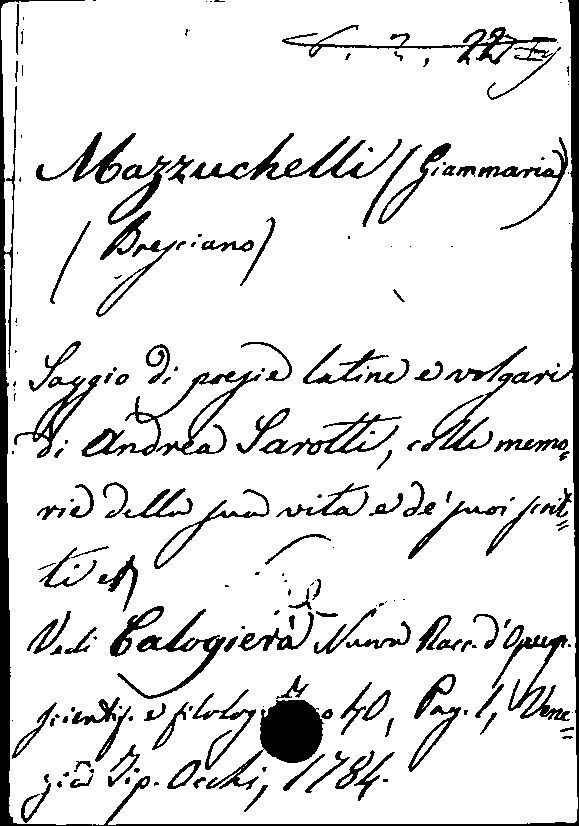 6. 2. 22
Mazzuchelli (Giammaria)
(Bresciano)
Saggio di poesie latine e volgari
di Andrea Sarotti, colle memo=
rie della sua vita e de' suoi scrit=
ti
Vedi Calogierà Nuova Racc. d'Opusp.
scientif. e filolog. 40, Pag. 1, Vene=
zia Tip. Occhi, 1784.